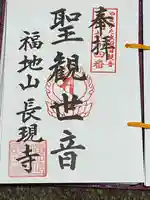 奉拝
聖観世音
福地山長現寺